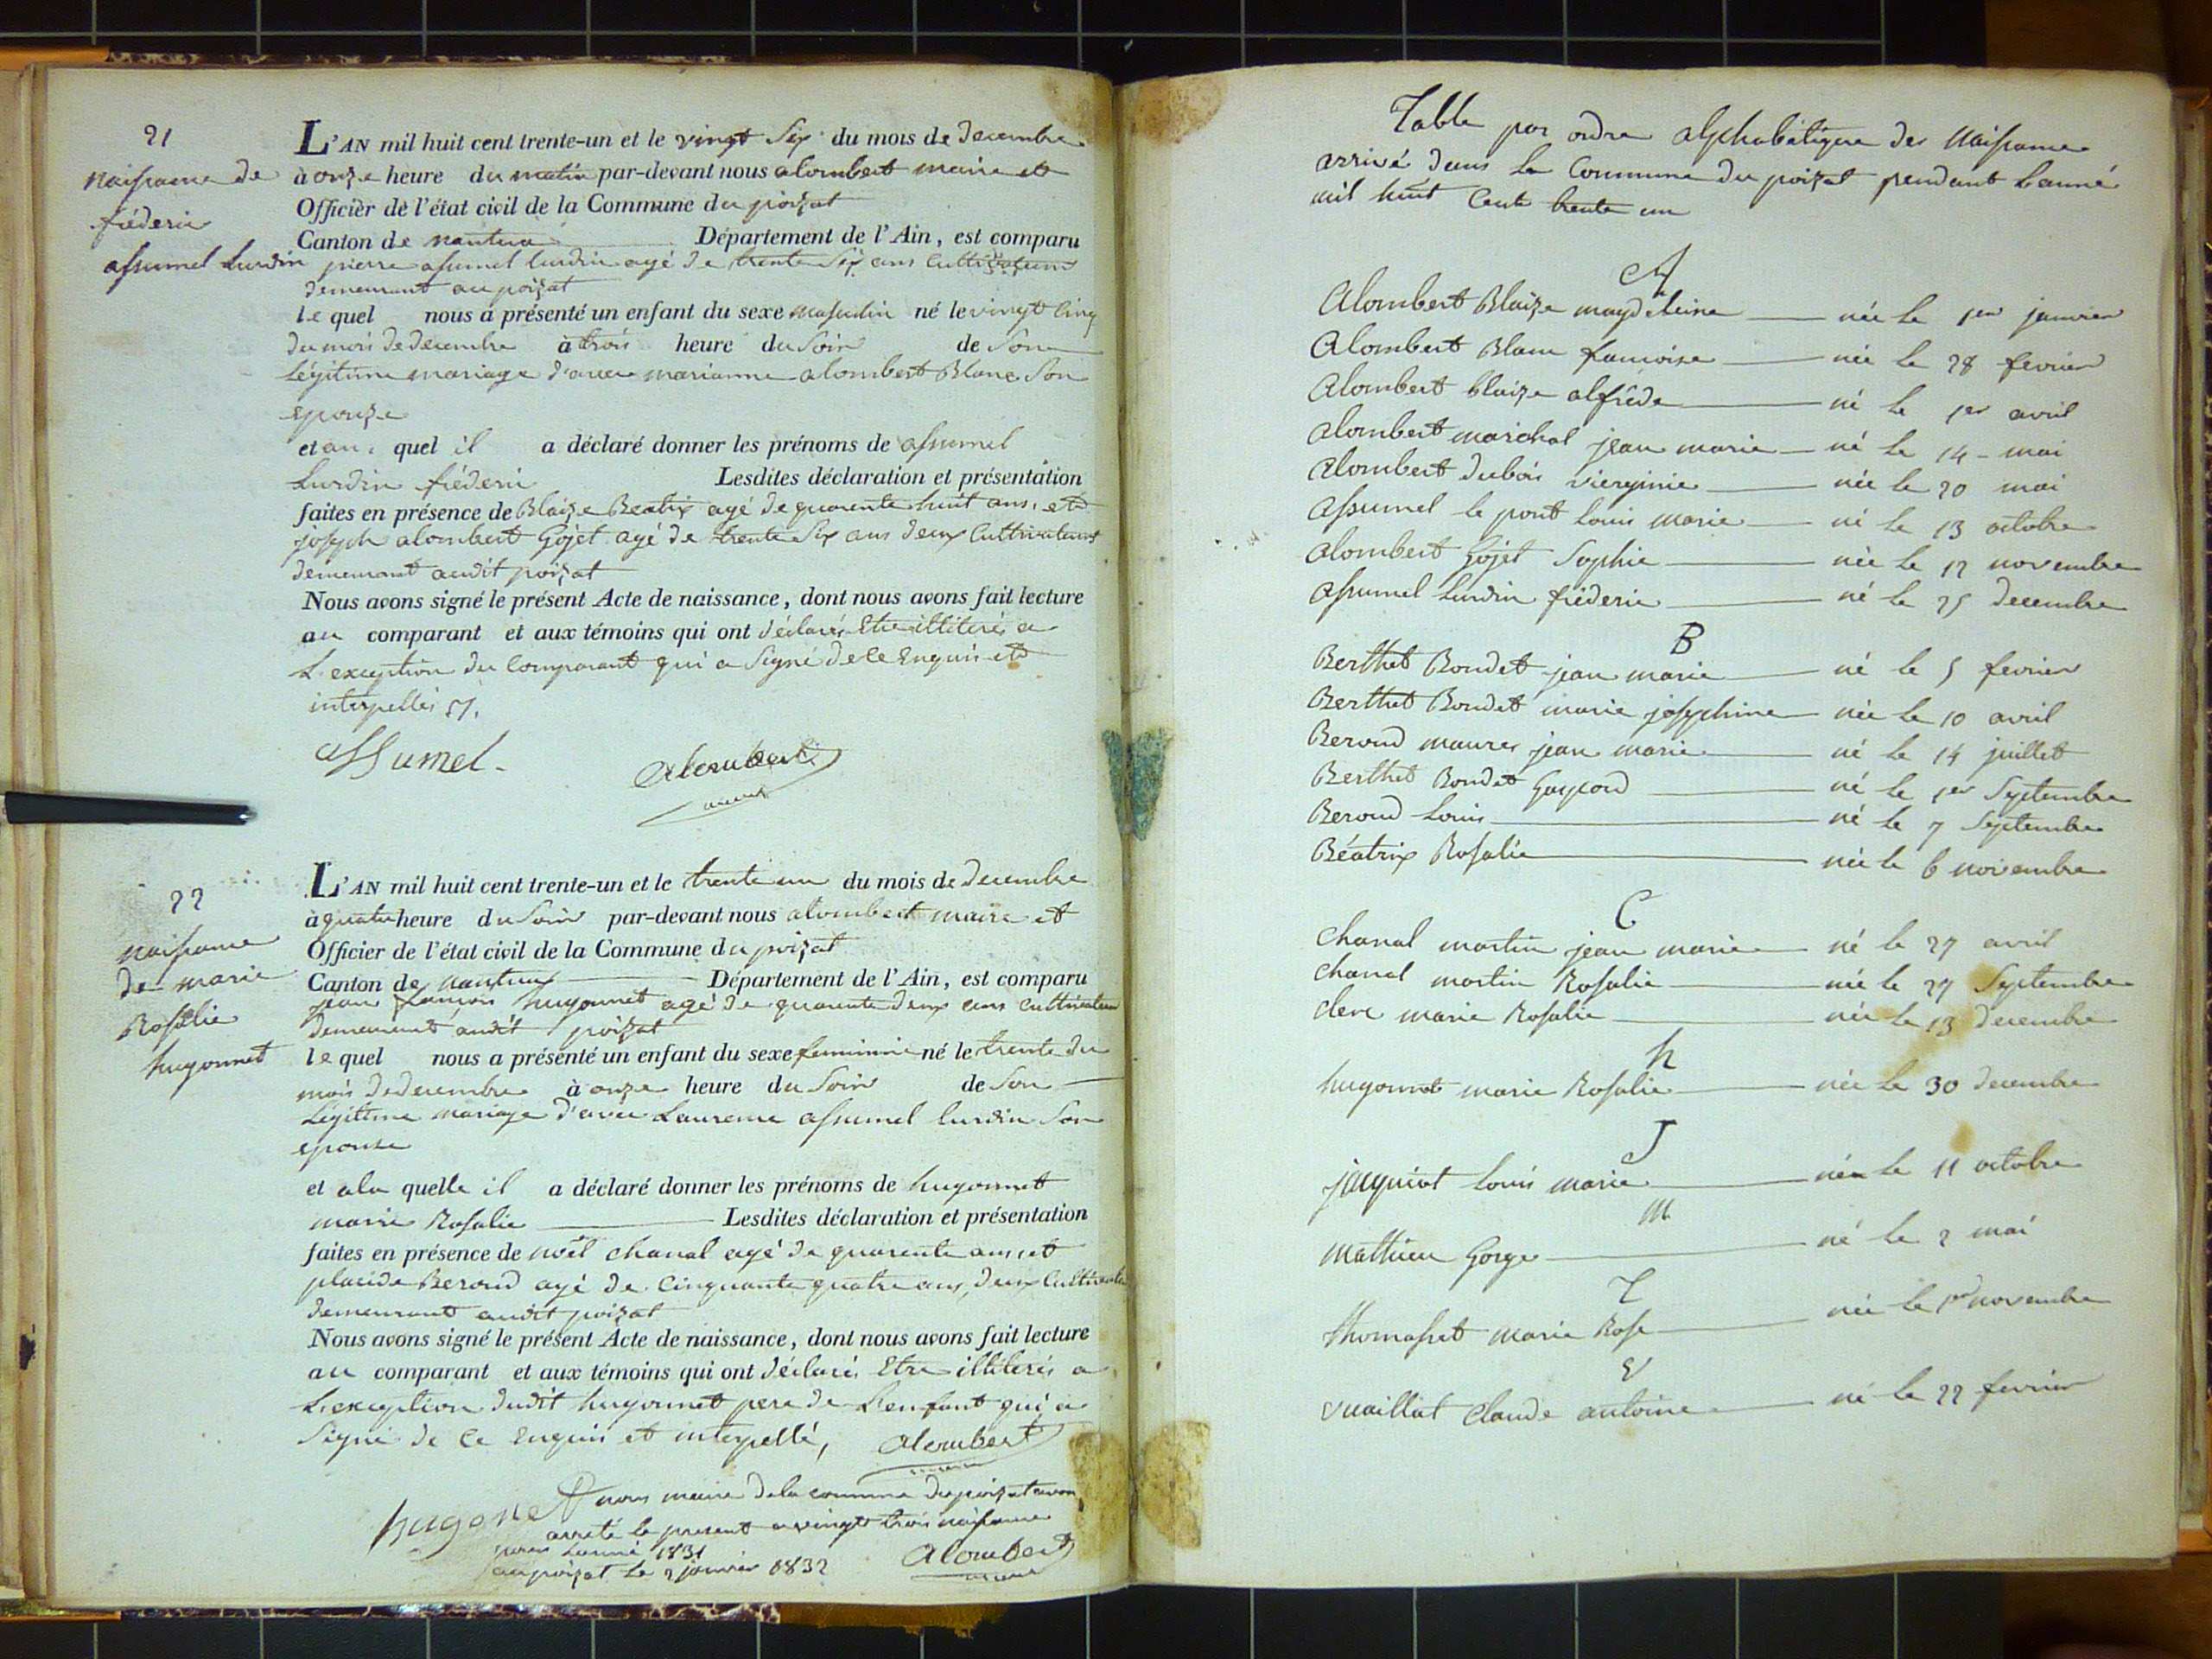 21
naissance de
féderic
assumel lurdin
L'AN mil huit cent trente-un et le vingt six du mois de decembre
à onze heure du matin par-devant nous alombert maire et
Officier de l'état civil de la Commune du poizat
Canton de nantua Département de l'Ain, est comparu
pierre assumel lurdin agé de trente six ans cultivateur
demeurant au poizat
le quel nous a présenté un enfant du sexe masculin né le vingt cinq
du mois de decembre à trois heure du soir de son
légitime mariage d'avec marianne alombert Blanc son
epouze
et au quel il a déclaré donner les prénoms de assumel
Lurdin féderic Lesdites déclaration et présentation
faites en présence de Blaize Beatrix agé de quarente huit ans, et
joseph alombert Gojet agé de trente six ans deux cultivateurs
demeurant audit poizat
Nous avons signé le présent Acte de naissance, dont nous avons fait lecture
au comparant et aux témoins qui ont déclarés Etre illiterés a
L'exception du comparant qui a signé de ce Enquis et
interpellés
assumel
alombert
maire
22
naissance
de marie
Rosalie
hugonnet
L'AN mil huit cent trente-un et le trente un du mois de decembre
à quatre heure du soir par-devant nous alombert maire et
Officier de l'état civil de la Commune du poizat
Canton de nantua Département de l'Ain, est comparu
jean francois hugonnet agé de quarente deux ans cultivateur
demeurant audit poizat
le quel nous a présenté un enfant du sexe feminin né le trente du
mois de decembre à onze heure du soir de son
légitime mariage d'avec Laurence assumel lurdin son
epouse
et a la quelle il a déclaré donner les prénoms de hugonnet
marie Rosalie Lesdites déclaration et présentation
faites en présence de noël chanal agé de quarente ans, et
placide Beroud agé de cinquante quatre ans, deux cultivateurs
demeurant audit poizat
Nous avons signé le présent Acte de naissance, dont nous avons fait lecture
au comparant et aux témoins qui ont déclarés Etre illiterés a
L'exception dudit hugonnet pere de L'enfant qui a
signé de ce Enquis et interpellé, alombert
maire
hugonet nous maire de la commune du poizat avon
arreté le present a vingt trois naissance
pour l'anné 1831
au poizat le 2 janvier 1832 alombert
maire
Table par ordre alphabétique des naissance
arrivé dans la Commune du poizat pendant L'anné
mil huit Cent trente un
A
Alombert Blaize magdeleine née le 1er janvier
Alombert Blanc francoise née le 28 fevrier
Alombert blaize alfrede né le 1er avril
Alombert marchal jean marie né le 14 mai
Alombert dubois vierginie née le 20 mai
Assumel le pont Louis marie né le 13 octobre
Alombert Gojet Sophie née le 12 novembre
Assumel Lurdin féderic né le 25 decembre
B
Berthet Bondet jean marie né le 5 fevrier
Berthet Bondet marie josephine née le 10 avril
Beroud maures jean marie né le 14 juillet
Berthet Bondet Gaspard né le 1er Septembre
Beroud Louis né le 7 Septembre
Béatrix Rosalie née le 6 novembre
C
chanal martin jean marie né le 27 avril
chanal martin Rosalie née le 27 Septembre
clerc marie Rosalie née le 13 decembre
h
hugonnet marie Rosalie née le 30 decembre
J
jacquiot Louis marie né le 11 octobre
m
mathieu Gorge né le 2 mai
T
thomasset marie Rose née le 1er novembre
V
vuaillat claude antoine né le 22 fevrier